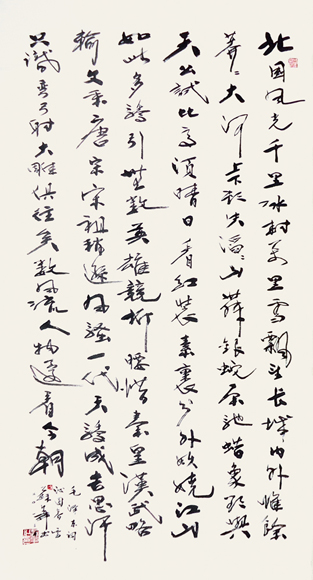 北国风光千里冰封万里雪飄望长城内外惟餘
莽々大河上下顿失滔々山舞银蛇原驰蜡象欲與
天公試比高须晴日看红装素裹分外妖娆江山
如此多娇引無数英雄競折腰惜秦皇漢武略
输文采唐宗宋祖稍逊风骚一代天骄成吉思汗
只識弯弓射大雕俱往矣数风流人物还看今朝
毛泽东词
沁园春雪